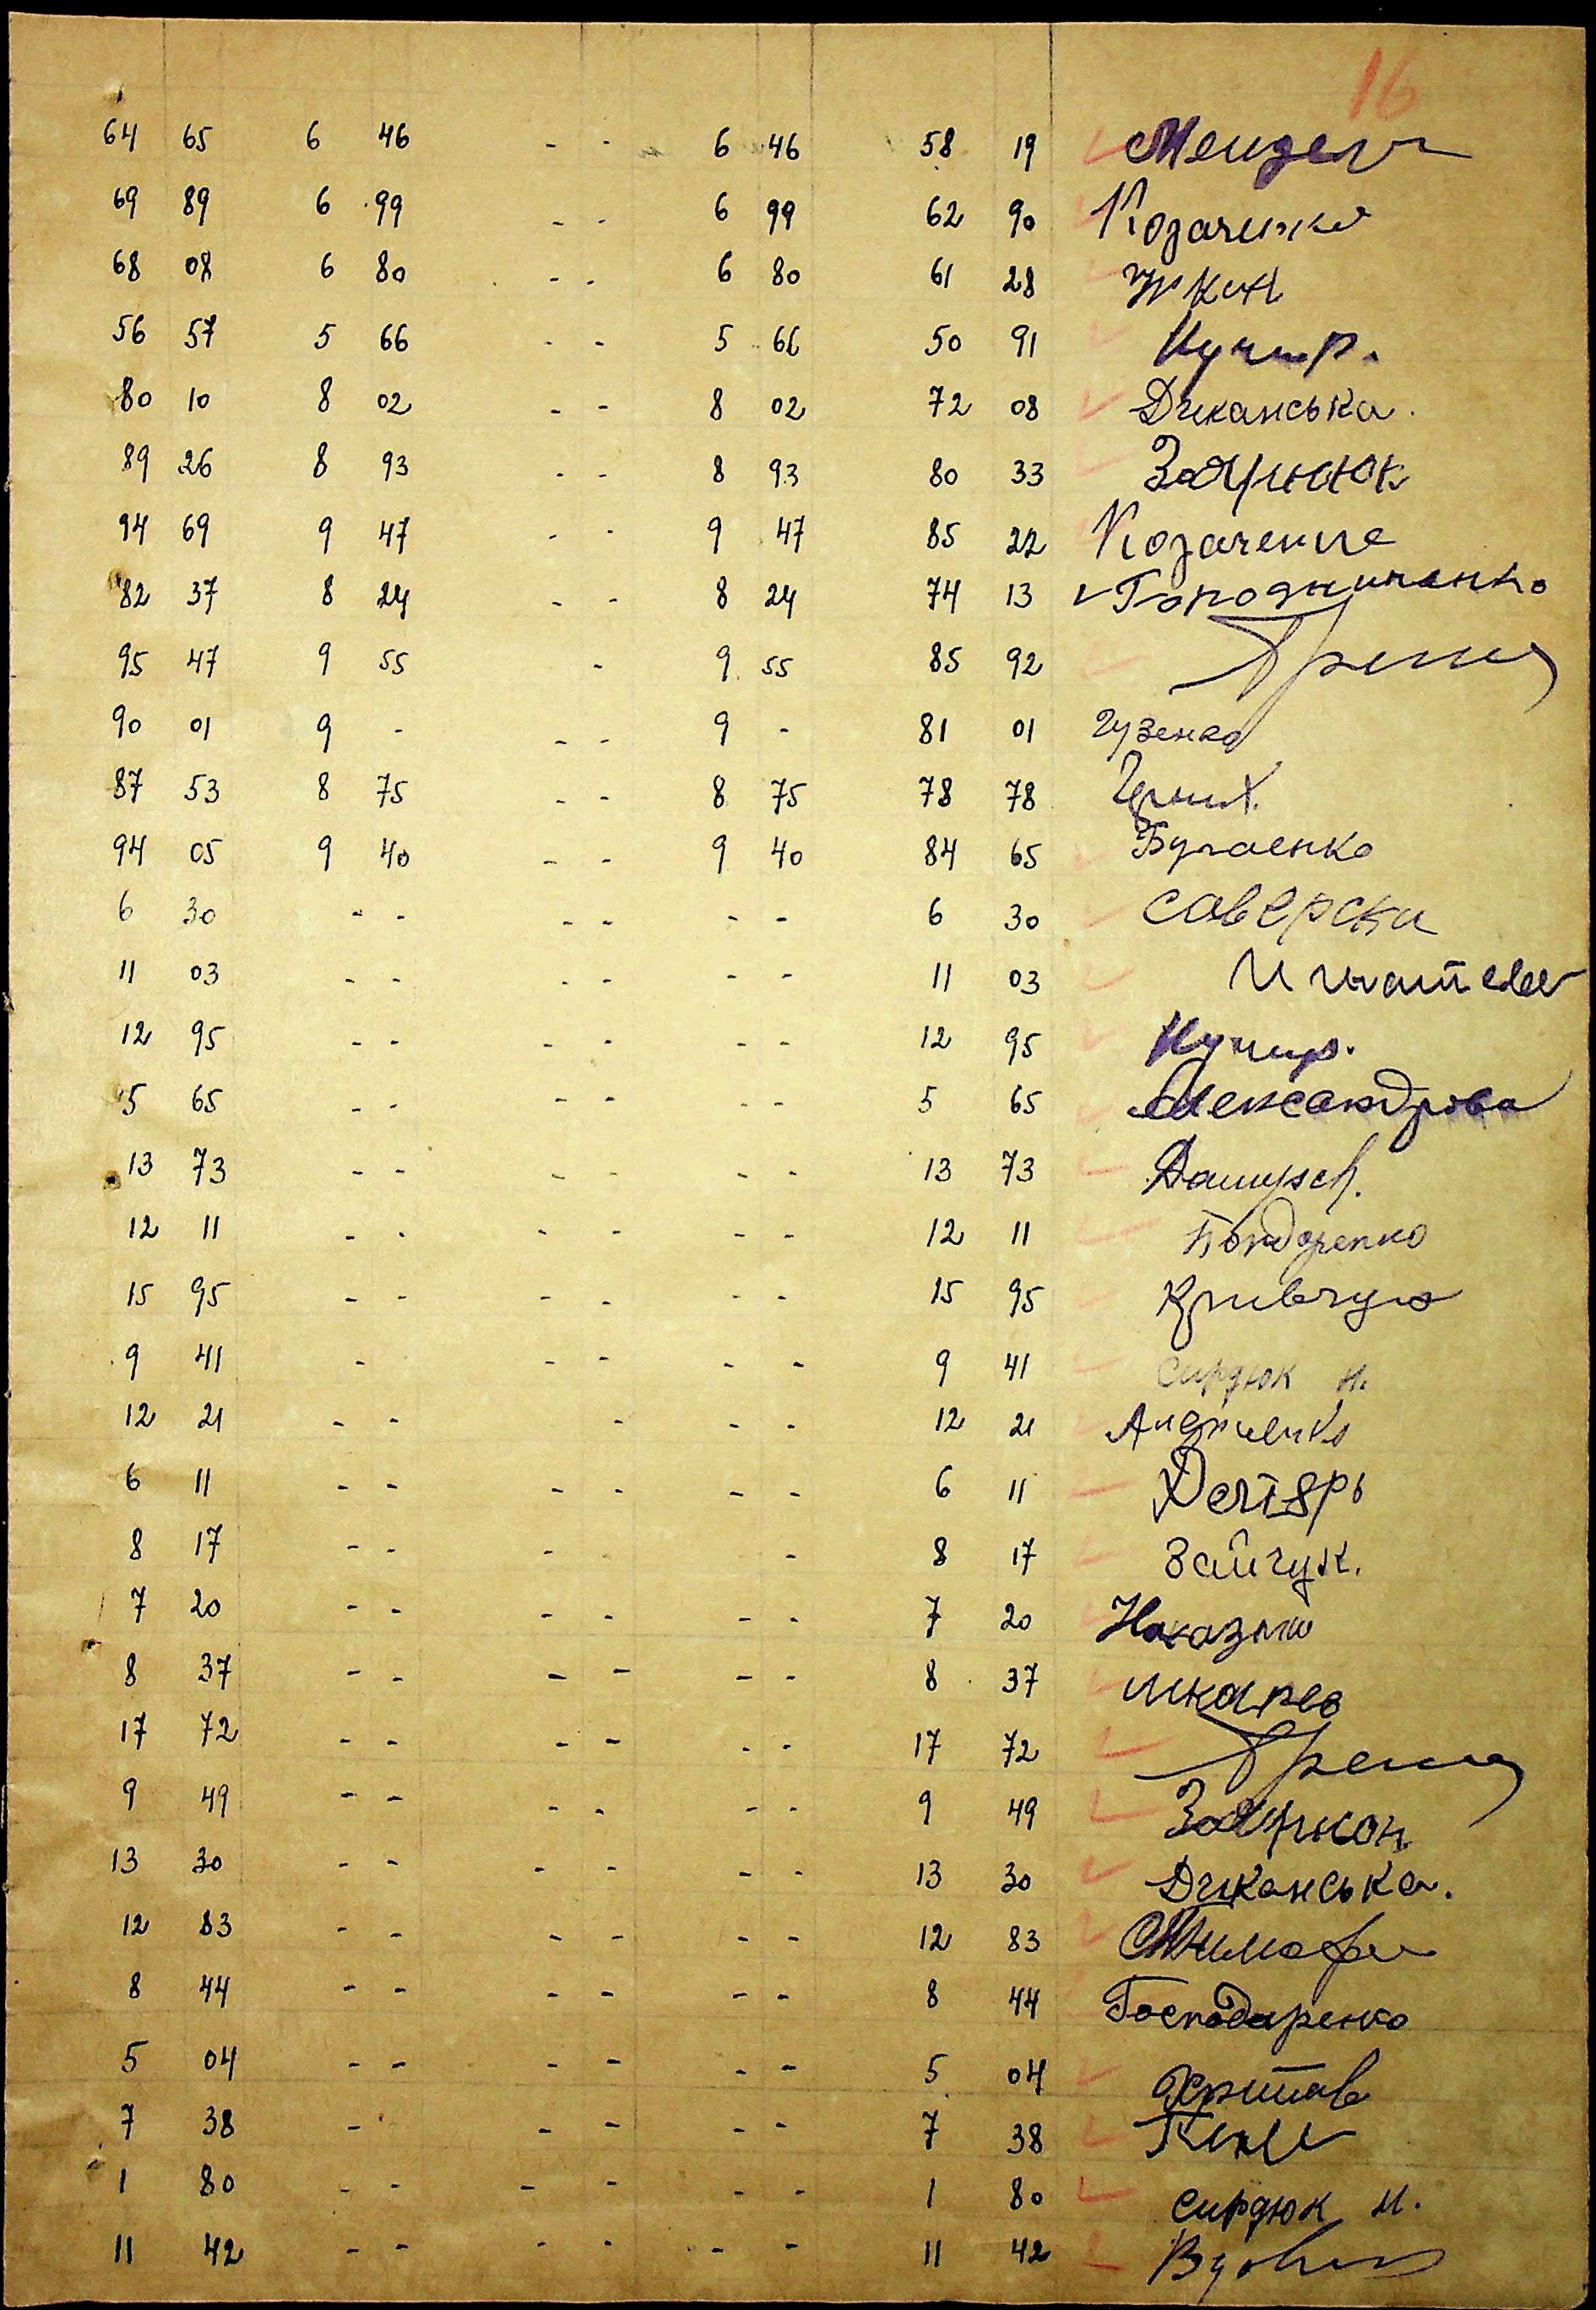 16
64 65 6 46 - - 6 46 58 19 Мендели
69 89 6 99 - - 6 99 62 90 Козаченко
68 08 6 80 - - 6 80 61 28
56 57 5 66 - - 5 66 50 91 Кучир.
80 10 8 02 - - 8 02 72 08 Диканська.
89 26 8 93 - - 8 93 80 33
94 69 9 47 - - 9 47 85 22 Козаченко
82 37 8 24 - - 8 24 74 13 Городниченко
95 47 9 55 - 9 55 85 92
90 01 9 - - - 9 - 81 01 Гузенко
87 53 8 75 - - 8 75 78 78
94 05 9 40 - - 9 40 84 65 Бугаенко
6 30 - - - - - - 6 30 Саверски
11 03 - - - - - - 11 03
12 95 - - - - - - 12 95 Кучир.
5 65 - - - - - - 5 65 Александрова
13 73 - - - - - - 13 73
12 11 - - - - - - 12 11 Бондаренко
15 95 - - - - - - 15 95 Кривчун
9 41 - - - - - 9 41 Сирдюк М.
12 21 - - - - - 12 21
6 11 - - - - - - 6 11 Дегтярь
8 17 - - - - 8 17 Зайчук.
7 20 - - - - - - 7 20
8 37 - - - - - - 8 37
17 72 - - - - - - 17 72
9 49 - - - - - - 9 49
13 30 - - - - - - 13 30 Диканська.
12 83 - - - - - - 12 83
8 44 - - - - - - 8 44 Господаренко
5 04 - - - - - - 5 04
7 38 - - - - - 7 38
1 80 - - - - - - 1 80 Сирдюк М.
11 42 - - - - - - 11 42